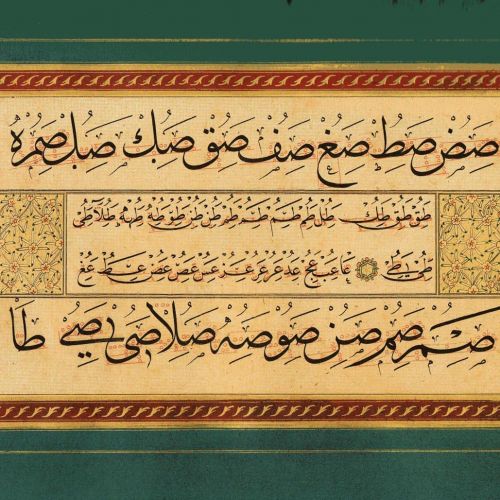 صض صط صع صف صق صك صل صمره
طق طق طك طل طم طم طم طر طن طن طو طه طه طلا طى
طى طي عا عب عج عد عر عر عز عس عص عض عط عع
صم صم صن صو صه صلا صى صي طا